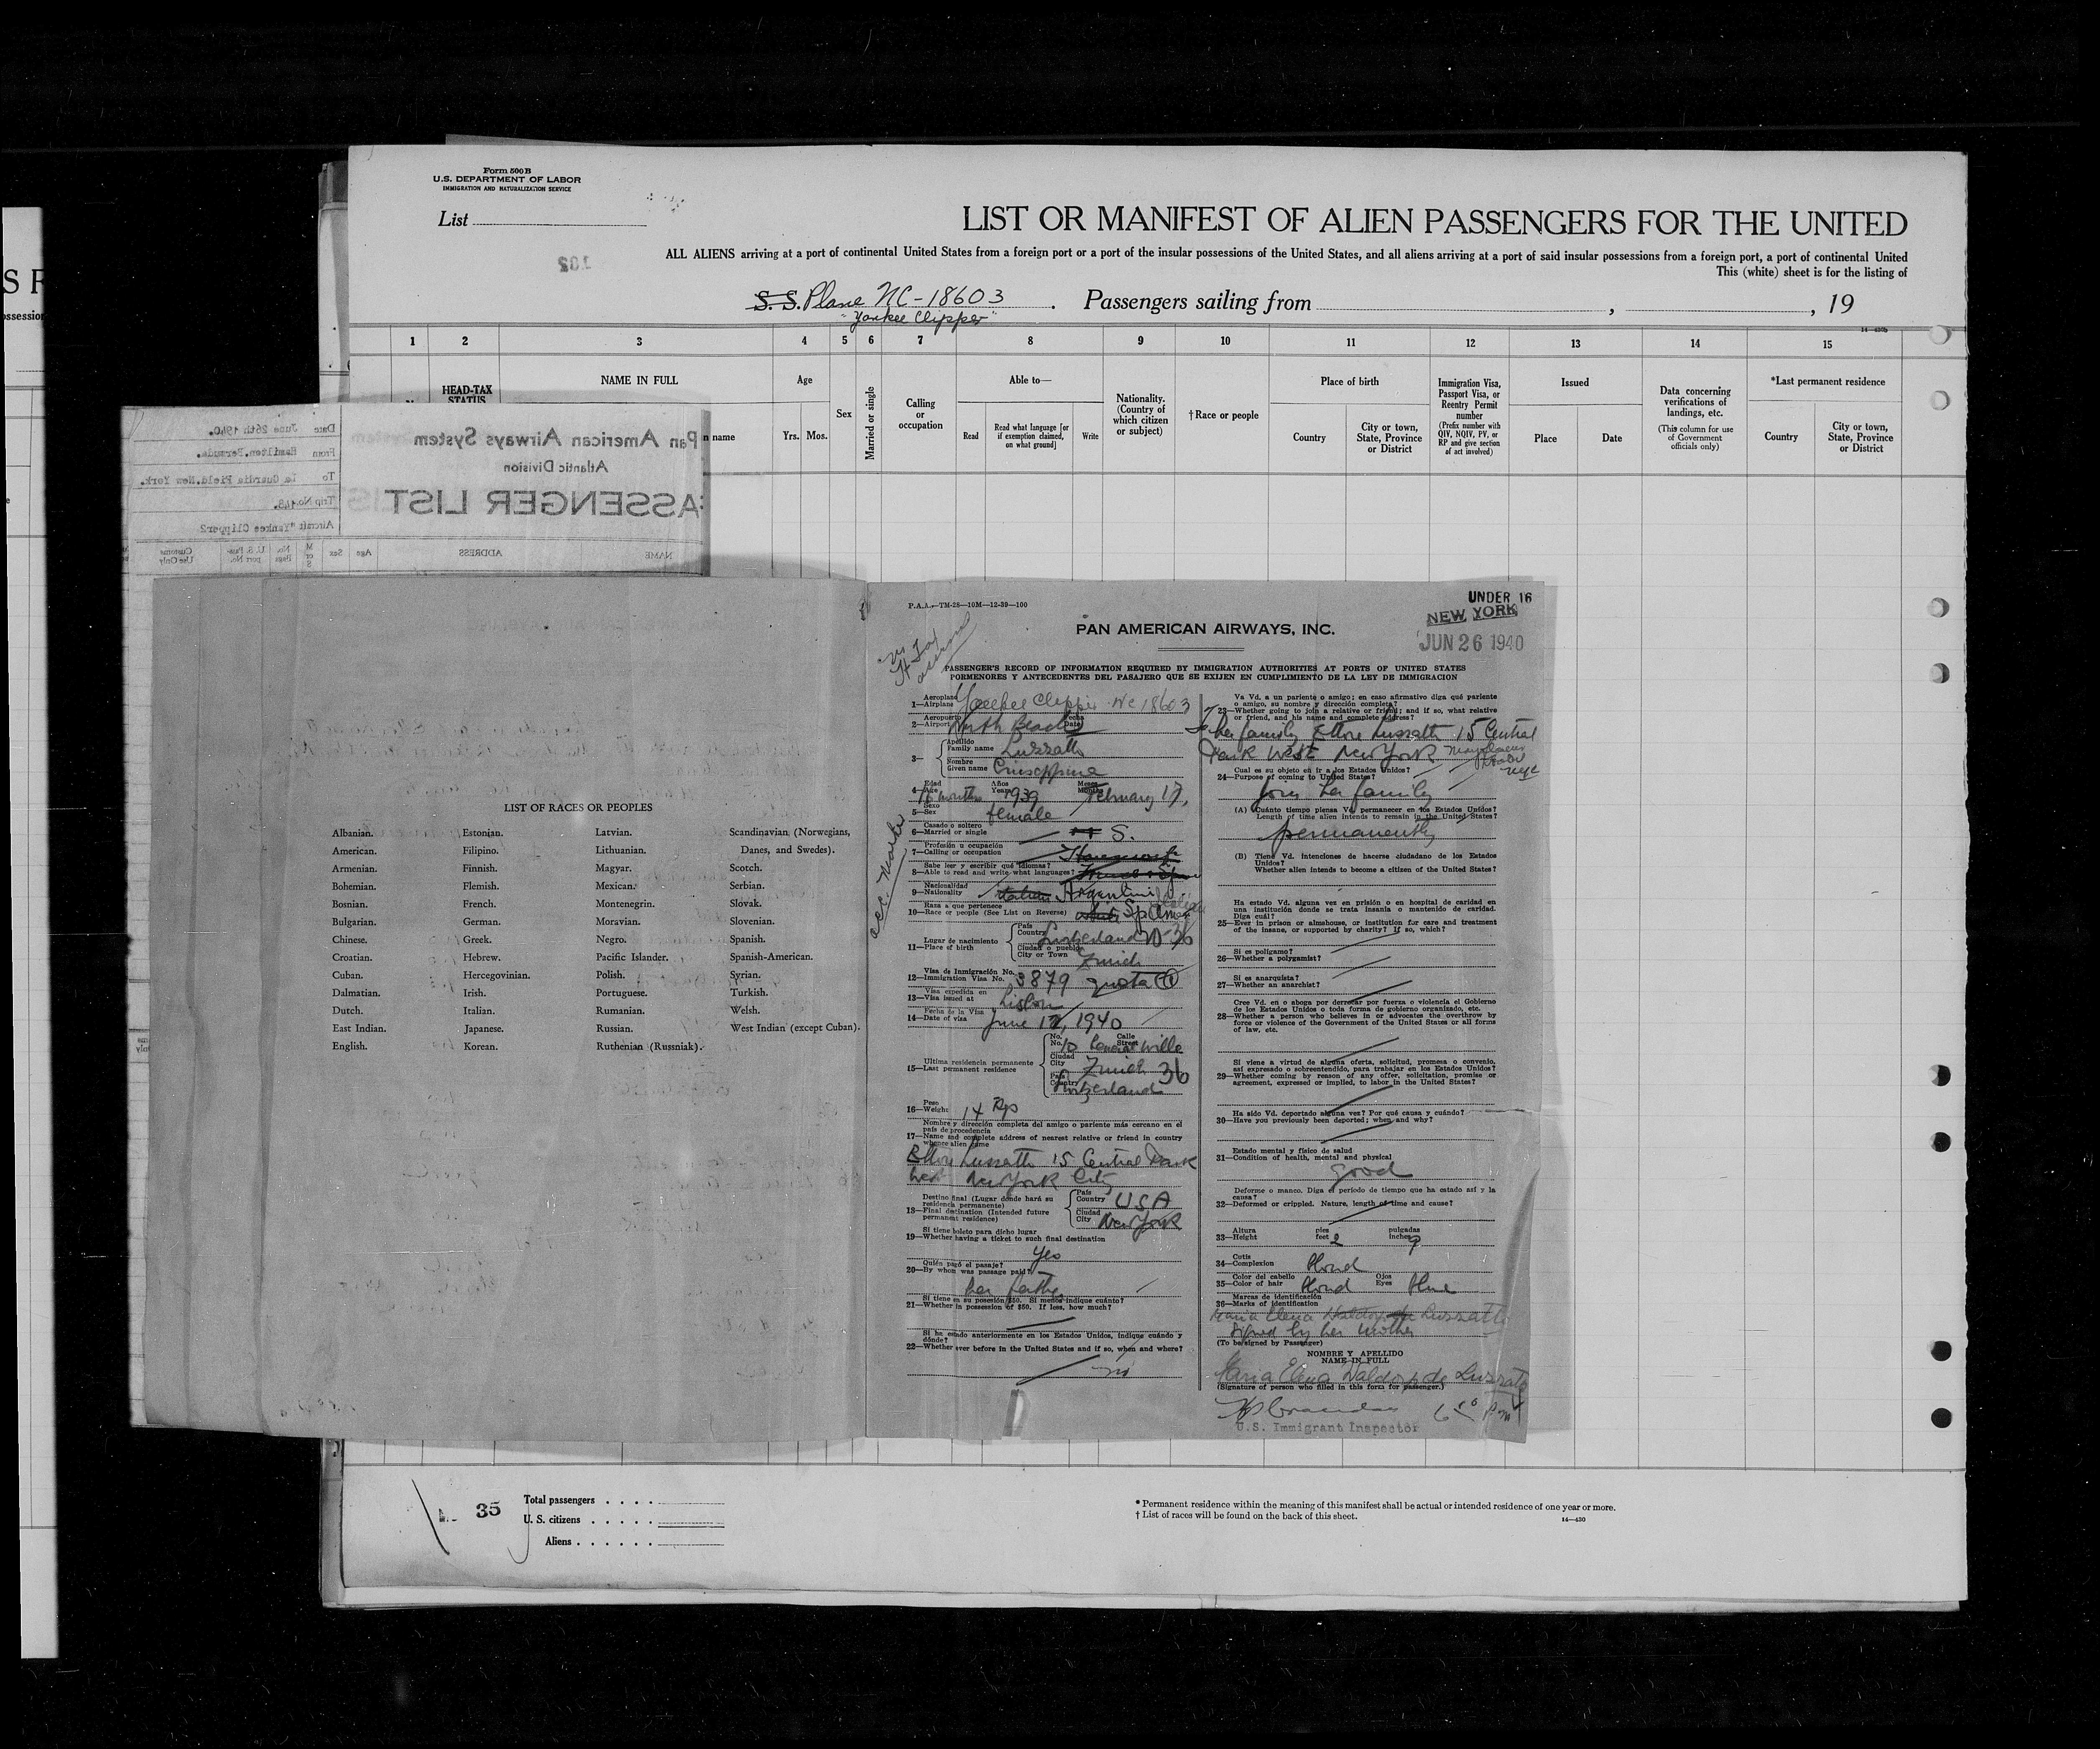 Form 500 B
U.S. DEPARTMENT OF LABOR
IMMIGRATION AND NATURALIZATION SERVICE
List
LIST OR MANIFEST OF ALIEN PASSENGERS FOR THE UNITED
ALL ALIENS arriving at a port of continental United States from a foreign port or a port of the insular possessions of the United States, and all aliens arriving at a port of said insular possessions from a foreign port, a port of continental United
This (white) sheet is for the listing of
202
S. S. Plane NC-18603 . Passengers sailing from , , 19
"Yankee Clipper"
1 2 3 4 5 6 7 8 9 10 11 12 13 14 15
HEAD-TAX STATUS
NAME IN FULL
n name
Age
Yrs. Mos.
Sex
Married or single
Calling or occupation
Able to—
Read
Read what language [or if exemption claimed, on what ground]
Write
Nationality. (Country of which citizen or subject)
†Race or people
Place of birth
Country
City or town, State, Province or District
Immigration Visa, Passport Visa, or Reentry Permit number
(Prefix number with QIV, NQIV, PV, or RP and give section of act involved)
Issued
Place
Date
Data concerning verifications of landings, etc.
(This column for use of Government officials only)
*Last permanent residence
Country
City or town, State, Province or District
Pan American Airways System
Atlantic Division
ASSENGER LIST
Date June 26th 1940.
From Hamilton.Bermuda.
To La Guardia Field.New York.
Trip No. 148.
Aircraft "Yankee Clipper2
NAME
ADDRESS
Age
Sex
M or S
No. Bags
U. S. Pass- port No.
Customs Use Only
LIST OF RACES OR PEOPLES
Albanian. Estonian. Latvian. Scandinavian (Norwegians,
American. Filipino. Lithuanian. Danes, and Swedes).
Armenian. Finnish. Magyar. Scotch.
Bohemian. Flemish. Mexican. Serbian.
Bosnian. French. Montenegrin. Slovak.
Bulgarian. German. Moravian. Slovenian.
Chinese. Greek. Negro. Spanish.
Croatian. Hebrew. Pacific Islander. Spanish-American.
Cuban. Hercegovinian. Polish. Syrian.
Dalmatian. Irish. Portuguese. Turkish.
Dutch. Italian. Rumanian. Welsh.
East Indian. Japanese. Russian. West Indian (except Cuban).
English. Korean. Ruthenian (Russniak).
P.A.A.—TM-28—10M—12-39—100
UNDER 16
NEW YORK
JUN 26 1940
PAN AMERICAN AIRWAYS, INC.
PASSENGER'S RECORD OF INFORMATION REQUIRED BY IMMIGRATION AUTHORITIES AT PORTS OF UNITED STATES
PORMENORES Y ANTECEDENTES DEL PASAJERO QUE SE EXIJEN EN CUMPLIMIENTO DE LA LEY DE INMIGRACION
Aeroplano
1—Airplane Yankee Clipper NC 18603
Aeropuerto Fecha
2—Airport North Beach Date
Apellido
3— Family name Luzzatto
Nombre
Given name Giuseppina
Edad Años Meses
4—Age 16 months Years 1939 Months February 17,
Sexo
5—Sex female
Casado o soltero
6—Married or single S.
Profesión u ocupación
7—Calling or occupation
Sabe leer y escribir qué idiomas?
8—Able to read and write what languages?
Nacionalidad
9—Nationality Italian Argentini
Raza a que pertenece
10—Race or people (See List on Reverse) white Sp Amer
Lugar de nacimiento
11—Place of birth
País
Country Switzerland
Ciudad o pueblo
City or Town Zurich
Visa de Inmigración No.
12—Immigration Visa No. 3879 quota
Visa expedida en
13—Visa issued at Lisbon
Fecha de la Visa
14—Date of visa June 12, 1940
Ultima residencia permanente
15—Last permanent residence
No. Calle
No. 10 Street General Wille
Ciudad
City Zurich
País
Country Switzerland
36
Peso
16—Weight 14 Kgs
Nombre y dirección completa del amigo o pariente más cercano en el
país de procedencia
17—Name and complete address of nearest relative or friend in country
whence alien came
Ettore Luzzatto 15 Central Park
West New York City
Destino final (Lugar donde hará su
residencia permanente)
18—Final destination (Intended future
permanent residence)
País
Country USA
Ciudad
City New York
Si tiene boleto para dicho lugar
19—Whether having a ticket to such final destination
Yes
Quién pagó el pasaje?
20—By whom was passage paid?
her father
Si tiene en su posesión $50. Si menos indique cuánto?
21—Whether in possession of $50. If less, how much?
Si ha estado anteriormente en los Estados Unidos, indique cuándo y
dónde?
22—Whether ever before in the United States and if so, when and where?
no
Va Vd. a un pariente o amigo; en caso afirmativo diga qué pariente
o amigo, su nombre y dirección completa?
23—Whether going to join a relative or friend; and if so, what relative
or friend, and his name and complete address?
her family Ettore Luzzatto 15 Central
Park West New York
Cual es su objeto en ir a los Estados Unidos?
24—Purpose of coming to United States?
join her family
(A) Cuánto tiempo piensa Vd. permanecer en los Estados Unidos?
Length of time alien intends to remain in the United States?
permanently
(B) Tiene Vd. intenciones de hacerse ciudadano de los Estados
Unidos?
Whether alien intends to become a citizen of the United States?
Ha estado Vd. alguna vez en prisión o en hospital de caridad en
una institución donde se trata insania o mantenido de caridad.
Diga cuál?
25—Ever in prison or almshouse, or institution for care and treatment
of the insane, or supported by charity? If so, which?
Si es polígamo?
26—Whether a polygamist?
Si es anarquista?
27—Whether an anarchist?
Cree Vd. en o aboga por derrocar por fuerza o violencia el Gobierno
de los Estados Unidos o toda forma de gobierno organizado, etc.
28—Whether a person who believes in or advocates the overthrow by
force or violence of the Government of the United States or all forms
of law, etc.
Si viene a virtud de alguna oferta, solicitud, promesa o convenio,
así expresado o sobreentendido, para trabajar en los Estados Unidos?
29—Whether coming by reason of any offer, solicitation, promise or
agreement, expressed or implied, to labor in the United States?
Ha sido Vd. deportado alguna vez? Por qué causa y cuándo?
30—Have you previously been deported; when and why?
Estado mental y físico de salud
31—Condition of health, mental and physical
good
Deforme o manco. Diga el período de tiempo que ha estado así y la
causa?
32—Deformed or crippled. Nature, length of time and cause?
Altura pies pulgadas
33—Height feet 2 inches 9
Cutis
34—Complexion blond
Color del cabello Ojos
35—Color of hair blond Eyes blue
Marcas de identificación
36—Marks of identification
Maria Elena Waldorp de Luzzatto
signed by her mother
(To be signed by Passenger)
NOMBRE Y APELLIDO
NAME IN FULL
Maria Elena Waldorp de Luzzatto
(Signature of person who filled in this form for passenger.)
U.S. Immigrant Inspector
35
Total passengers . . . .
U. S. citizens . . . . .
Aliens . . . . . .
* Permanent residence within the meaning of this manifest shall be actual or intended residence of one year or more.
† List of races will be found on the back of this sheet.
14—430